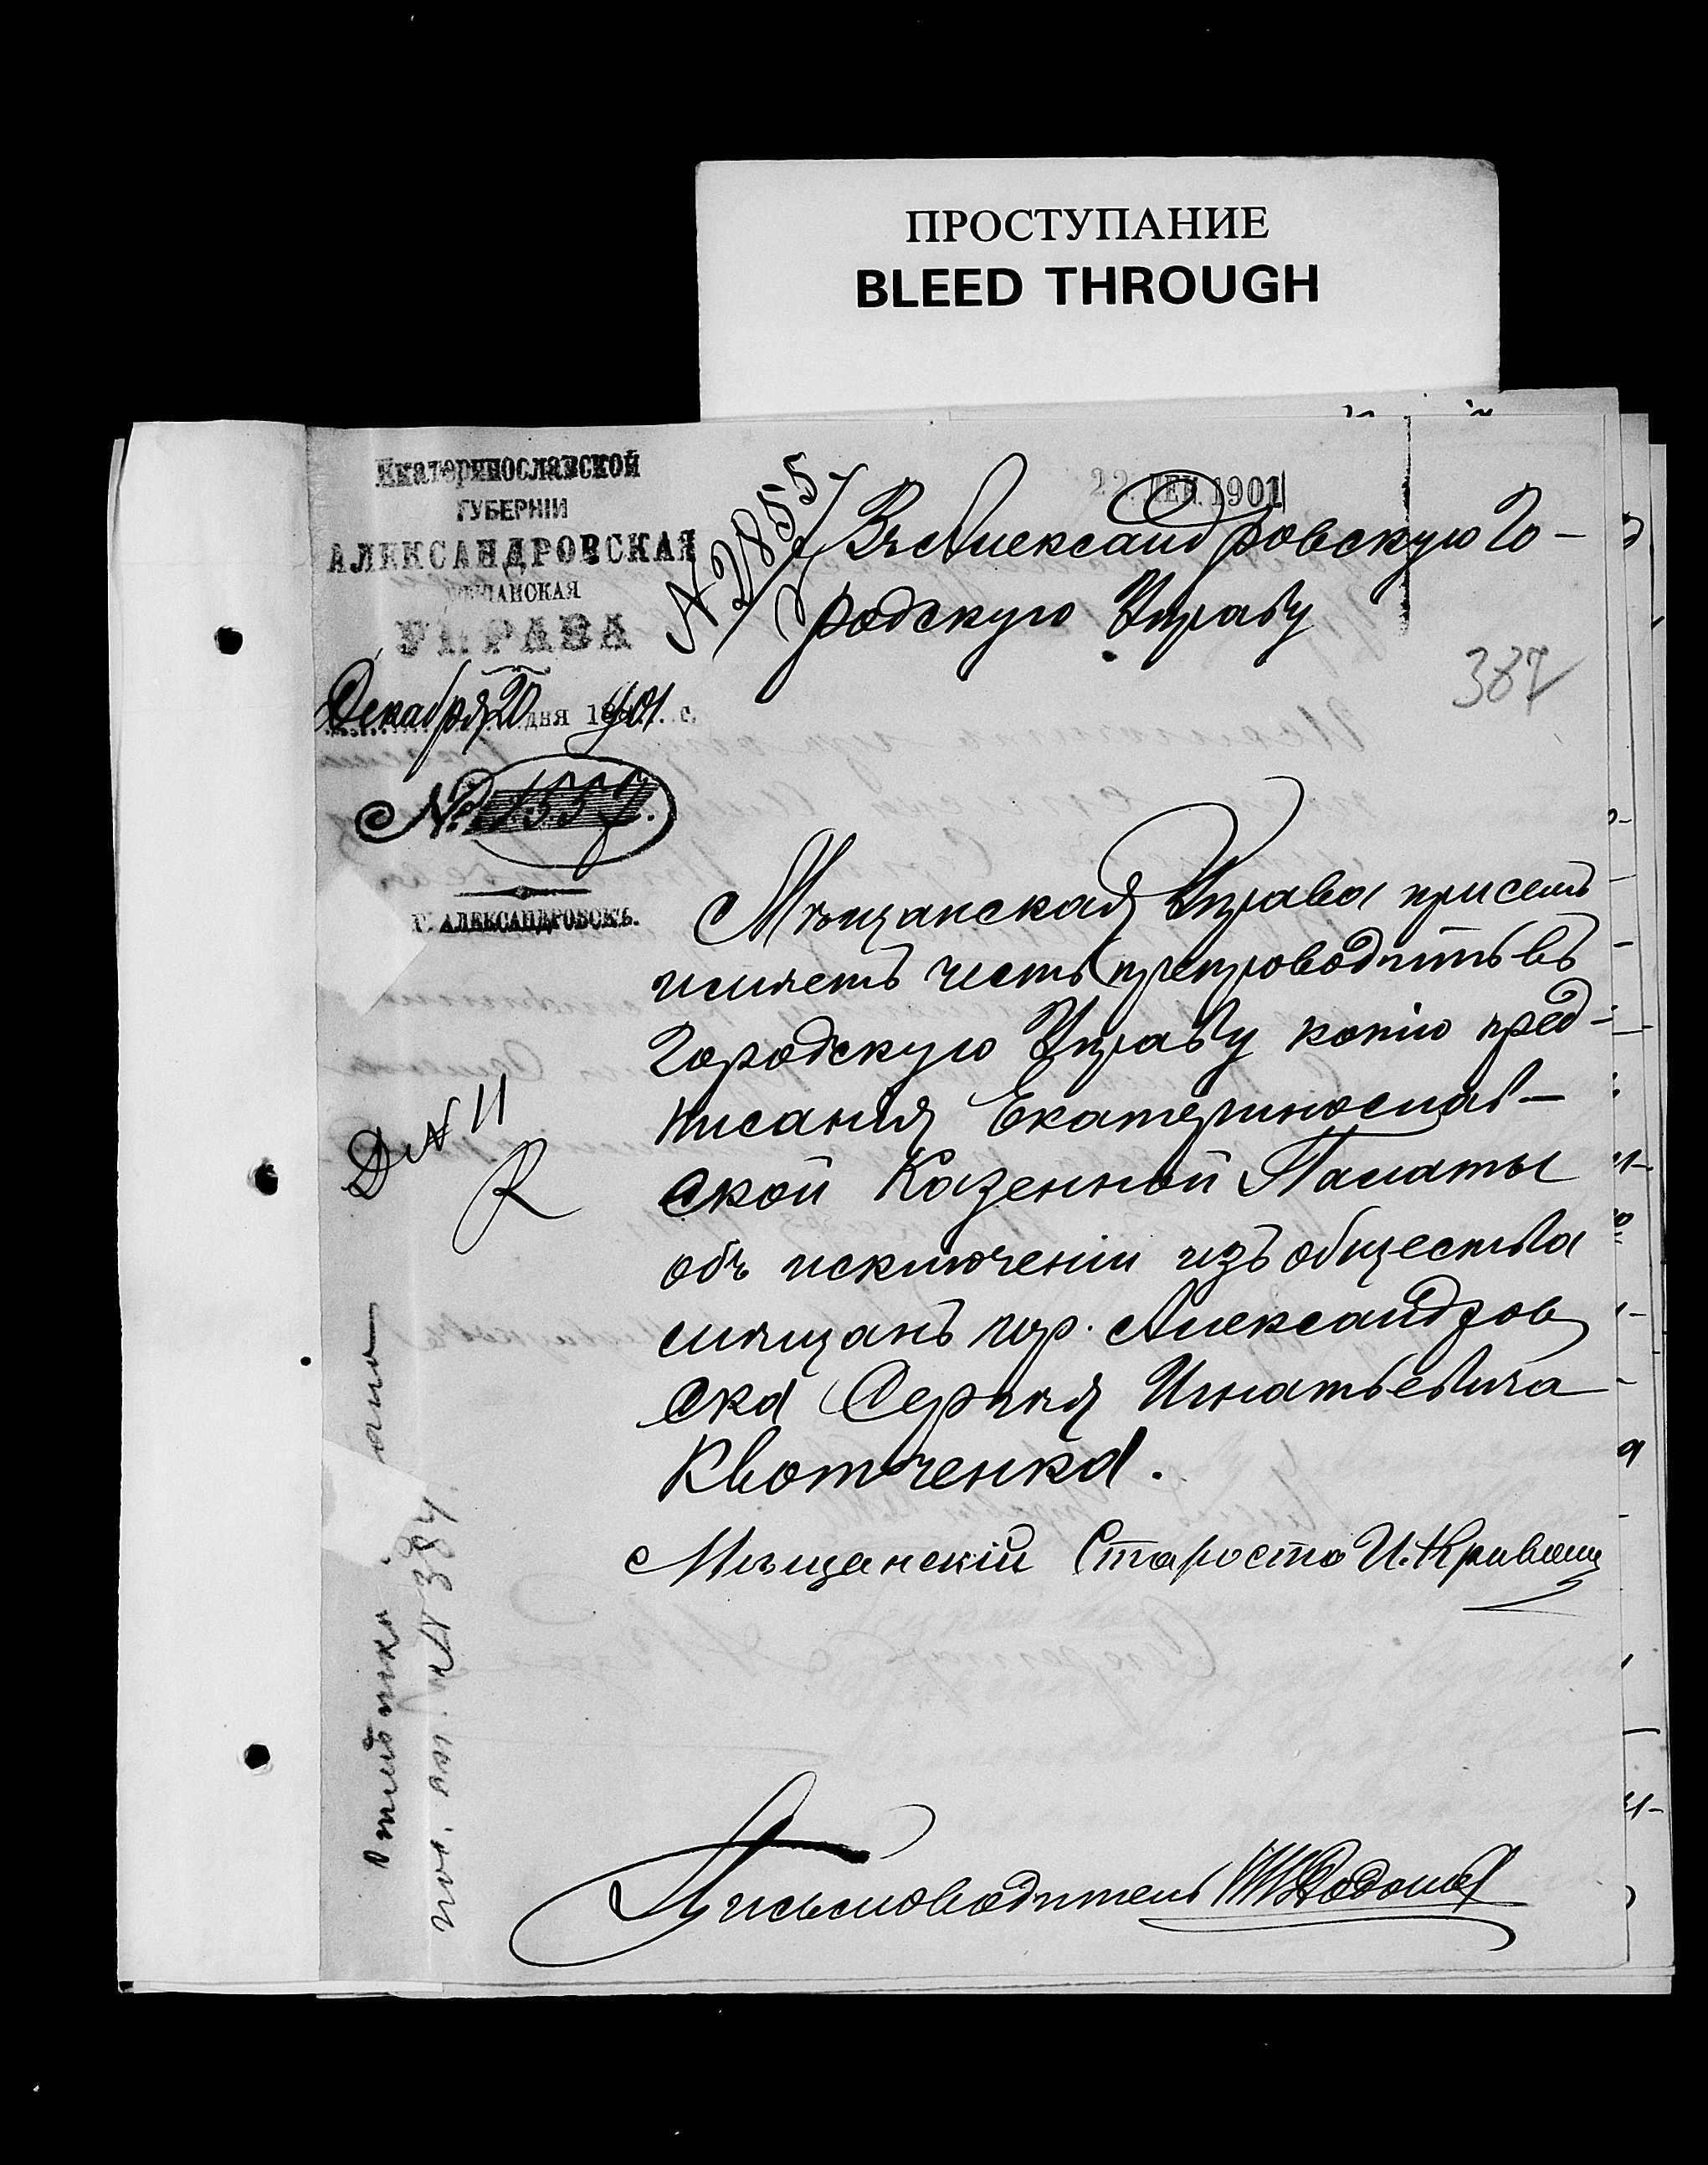 ПРОСТУПАНИЕ
BLEED THROUGH
Екатеринославской
ГУБЕРНІИ
АЛЕКСАНДРОВСКАЯ
МѢЩАНСКАЯ
УПРАВА
Декабря 20 дня 1901 с.
№ 1557.
Г. АЛЕКСАНДРОВСКЪ.
N 2855
22 ДЕК. 1901
Въ Александровскую Го-
родскую Управу
387
Мѣщанская Управа присемъ
имѣетъ честь препроводить въ
Городскую Управу копію пред-
писанія Екатеринослав-
ской Казенной Палаты
объ исключеніи изъ общества
мѣщанъ гор. Александров
ска Сергѣя Игнатьевича
Квотченка.
Мѣщанскій Староста И. Кривош
Письмоводитель
Д N 11
N 384